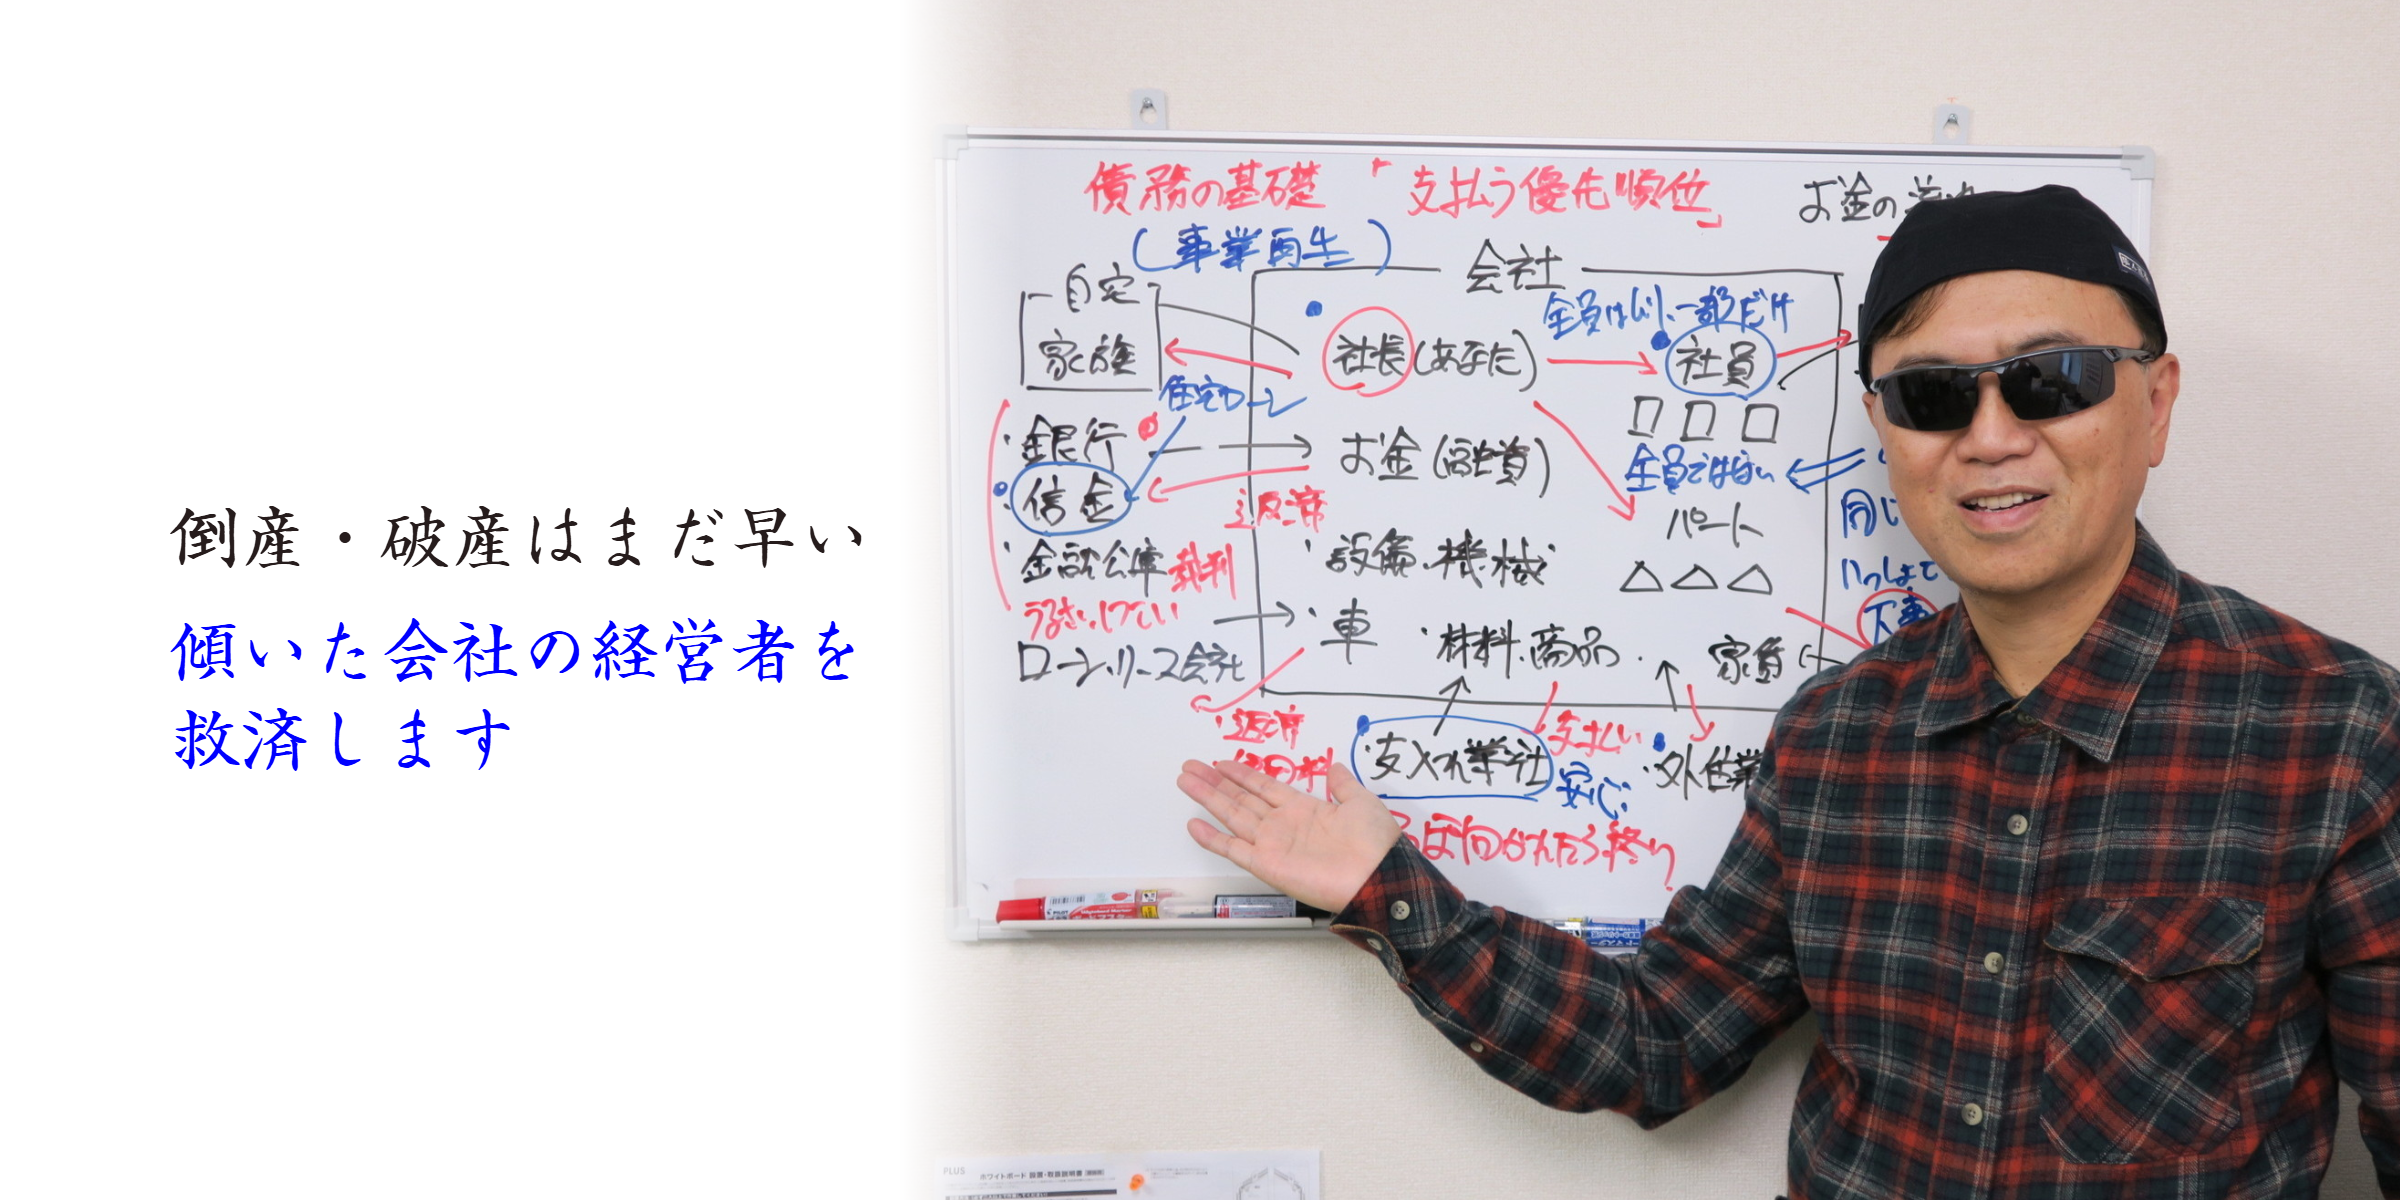 倒産・破産はまだ早い
傾いた会社の経営者を
救済します
債務の基礎 「支払う優先順位」 お金の
(事業再生)
自宅 会社
全員はムリ、一部だけ
家族 社長(あなた) 社員
住宅ローン
・銀行 お金(融資) 全員ではない
・信金 返済 パート 同じ
・金融公庫 裁判 ・設備・機械
うるさい、しつこい いっしょて
ローン・リース会社 ・車 ・材料・商品 家賃
・返済 支払い
・支入れ業社 安心 ・外注業
っぽ向かれたら終り
PLUS
ホワイトボード 設置・取扱説明書